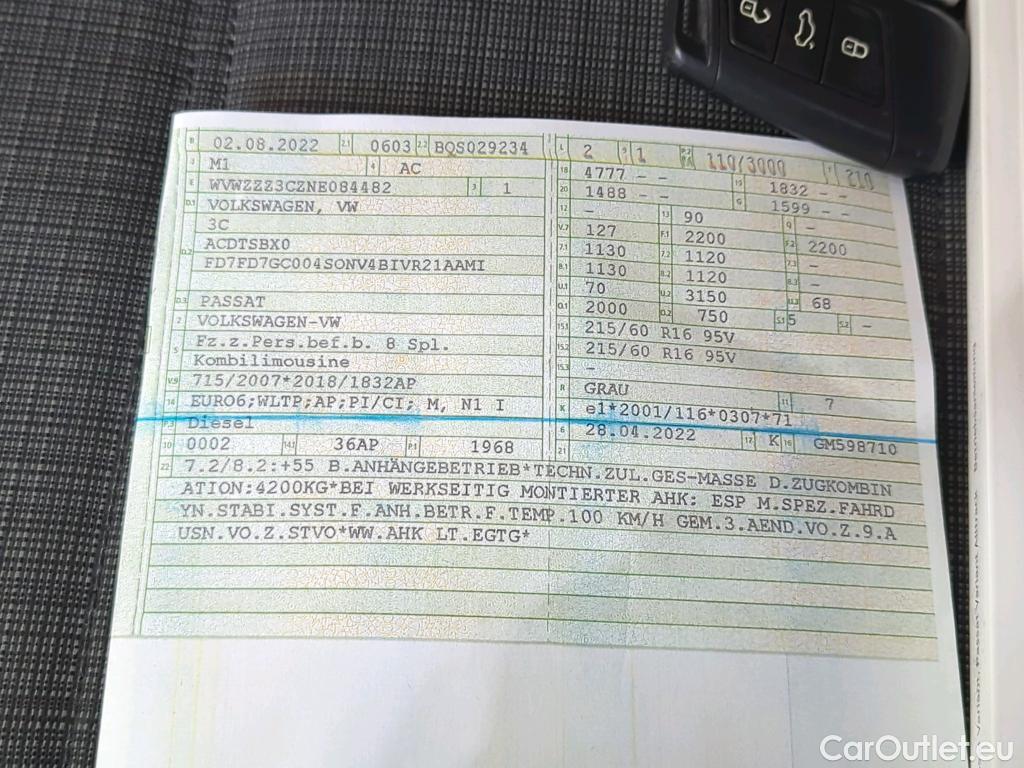 B 02.08.2022 2.1 0603 2.2 BQS029234
J M1 4 AC
E WVWZZZ3CZNE084482 3 1
D.1 VOLKSWAGEN, VW
3C
D.2 ACDTSBX0
FD7FD7GC004SONV4BIVR21AAMI
D.3 PASSAT
2 VOLKSWAGEN-VW
5 Fz.z.Pers.bef.b. 8 Spl.
Kombilimousine
V.9 715/2007*2018/1832AP
14 EURO6;WLTP;AP;PI/CI; M, N1 I
P.3 Diesel
10 0002 14.1 36AP P.1 1968
L 2 9 1 P.2 P.4 110/3000 T 210
18 4777 - - 19 1832 - -
20 1488 - - G 1599 - -
12 - 13 90 Q -
V.7 127 F.1 2200 F.2 2200
7.1 1130 7.2 1120 7.3 -
8.1 1130 8.2 1120 8.3 -
U.1 70 U.2 3150 U.3 68
O.1 2000 O.2 750 S.1 5 S.2 -
15.1 215/60 R16 95V
15.2 215/60 R16 95V
15.3 -
R GRAU 11 7
K e1*2001/116*0307*71
6 28.04.2022 17 K 16 GM598710
21
22 7.2/8.2:+55 B.ANHÄNGEBETRIEB*TECHN.ZUL.GES-MASSE D.ZUGKOMBIN
ATION:4200KG*BEI WERKSEITIG MONTIERTER AHK: ESP M.SPEZ.FAHRD
YN.STABI.SYST.F.ANH.BETR.F.TEMP.100 KM/H GEM.3.AEND.VO.Z.9.A
USN.VO.Z.STVO*WW.AHK LT.EGTG*
Variant, Passat Variant Alltrack
CarOutlet.eu